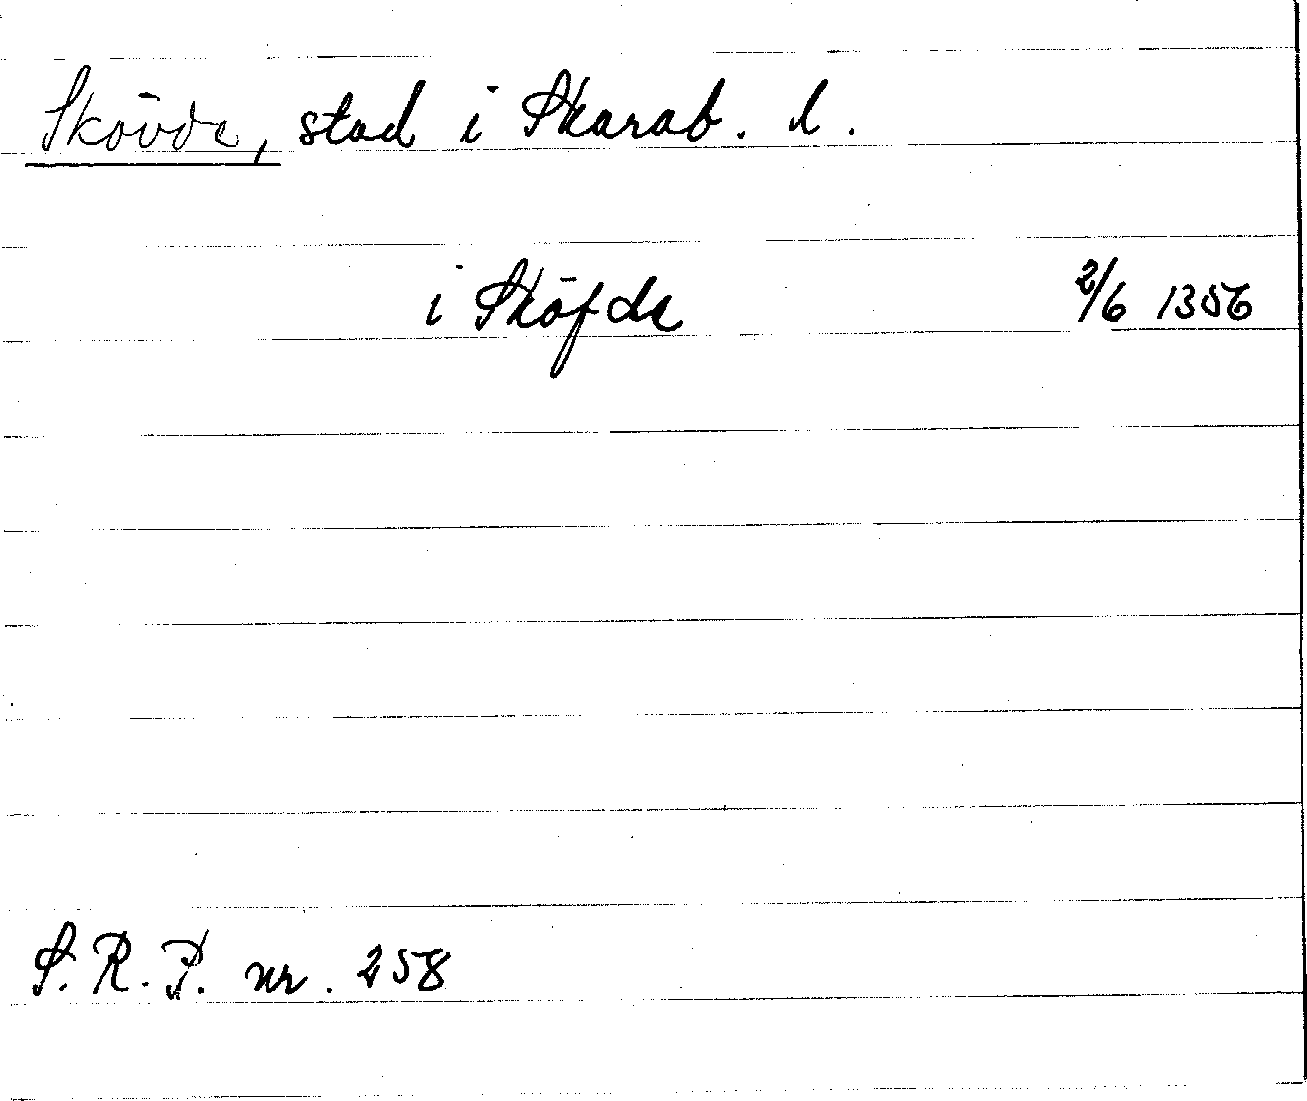 Skövde, stad i Skarab. l.
i Sköfde 2/6 1356
S.R.P. nr. 258